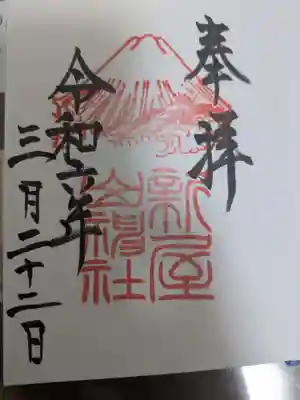 奉拝
新屋
山神社
令和六年
三月二十二日